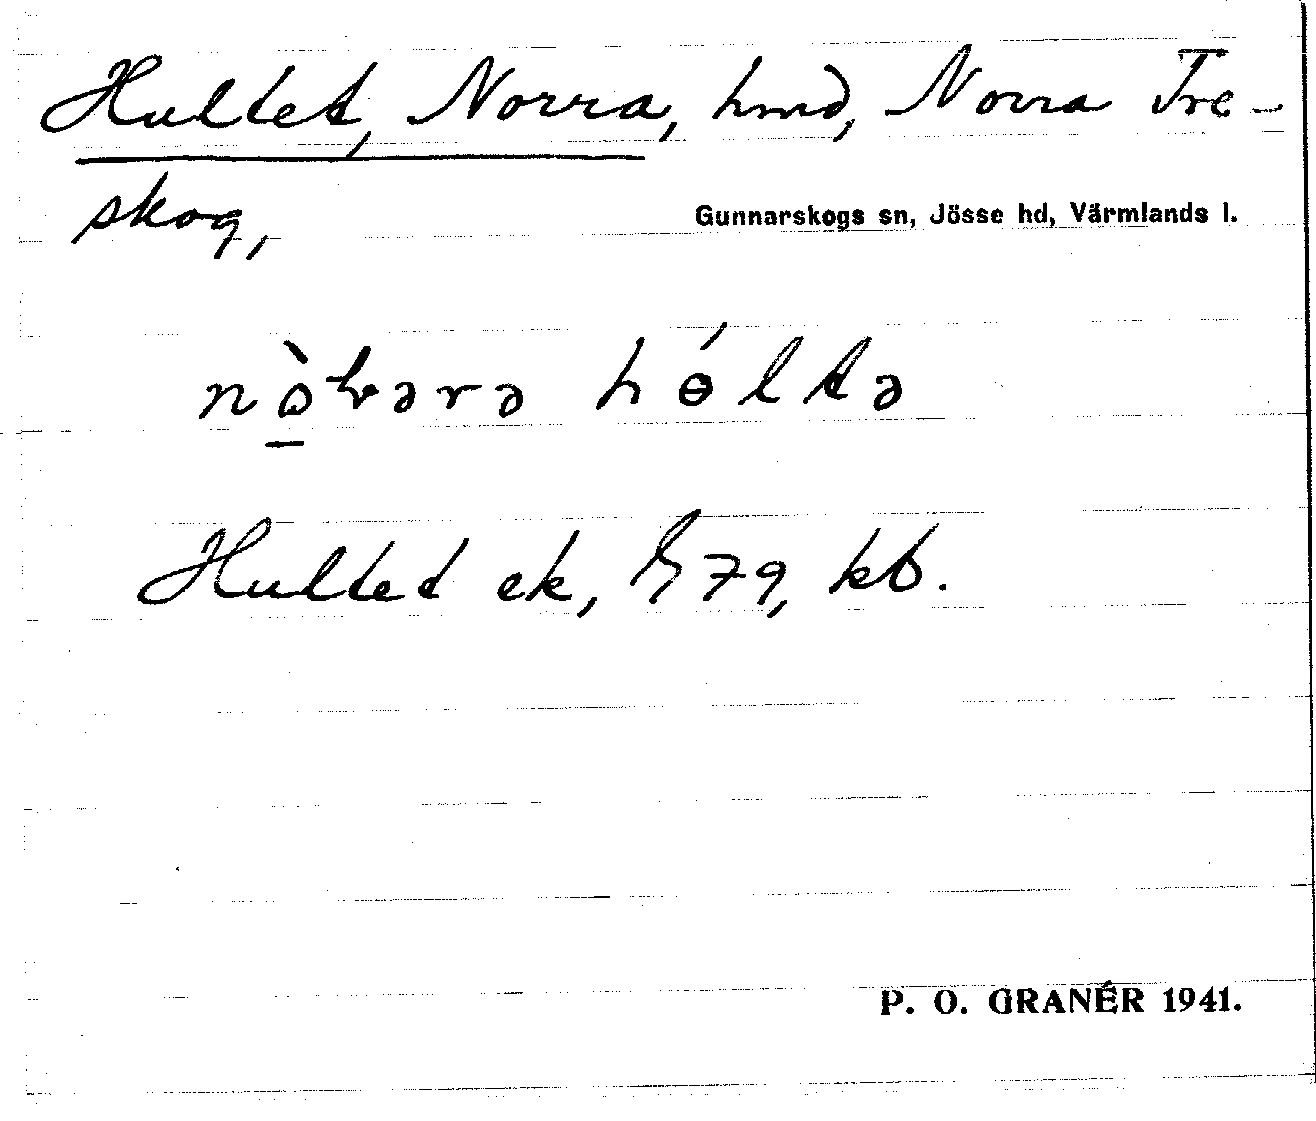 Hultet, Norra, hmd, Norra Tre-
skog,
Gunnarskogs sn, Jösse hd, Värmlands l.
hɵ́ltə
Hultet ek, 79, kb.
P. O. GRANÉR 1941.